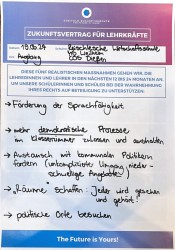 ZUKUNFTSVERTRAG FÜR LEHRKRÄFTE
19.06.24
Augsburg
Reischlesche Wirtschaftsschule
DIESE FÜNF REALISTISCHEN MASSNAHMEN GEHEN WIR, DIE
LEHRERINNEN UND LEHRER IN DEN NÄCHSTEN 12 BIS 24 MONATEN AN,
UM UNSERE SCHÜLERINNEN UND SCHÜLER BEI DER WAHRNEHMUNG
IHRES RECHTS AUF BETEILIGUNG ZU UNTERSTÜTZEN.
→ Förderung der Sprachfähigkeit
→ mehr demokratische Prozesse
im Klassenzimmer zulassen und aushalten
→ Austausch mit kommunalen Politikern
fördern (unkomplizierte Lösung, nieder-
schwellige Angebote)
→ "Räume" schaffen: Jeder wird gesehen
und gehört!
→ politische Orte besuchen
The Future is Yours!